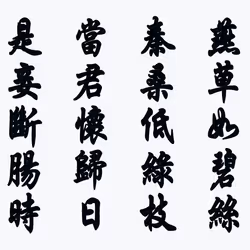 燕草如碧絲
秦桑低綠枝
當君懷歸日
是妾斷腸時